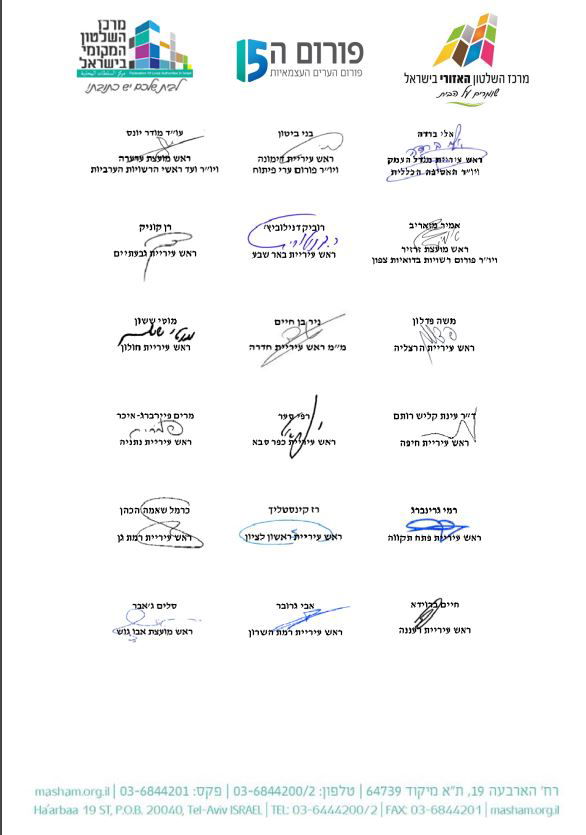 מרכז השלטון האזורי בישראל
שומרים על הבית
פורום ה15
פורום הערים העצמאיות
מרכז השלטון המקומי בישראל
מרכז השלטון המקומי בישראל
Federation of Local Authorities in Israel
לבית שלכם יש כתובת
אלי ברדה
ראש עיריית מגדל העמק
ויו״ר האסיפה הכללית
בני ביטון
ראש עיריית דימונה
ויו״ר פורום ערי פיתוח
עו״ד מודר יונס
ראש מועצת ערערה
ויו״ר ועד ראשי הרשויות הערביות
אמיר מזאריב
ראש מועצת זרזיר
ויו״ר פורום רשויות בדואיות צפון
רוביק דנילוביץ׳
ראש עיריית באר שבע
רן קוניק
ראש עיריית גבעתיים
משה פדלון
ראש עיריית הרצליה
ניר בן חיים
מ״מ ראש עיריית חדרה
מוטי ששון
ראש עיריית חולון
ד״ר עינת קליש רותם
ראש עיריית חיפה
רפי סער
ראש עיריית כפר סבא
מרים פיירברג-איכר
ראש עיריית נתניה
רמי גרינברג
ראש עיריית פתח תקווה
רז קינסטליך
ראש עיריית ראשון לציון
כרמל שאמה הכהן
ראש עיריית רמת גן
חיים ברוידא
ראש עיריית רעננה
אבי גרובר
ראש עיריית רמת השרון
סלים ג׳אבר
ראש מועצת אבו גוש
רח׳ הארבעה 19, ת״א מיקוד 64739 | טלפון: 03-6844200/2 | פקס: 03-6844201 | masham.org.il
Ha'arbaa 19 ST, P.O.B. 20040, Tel-Aviv ISRAEL | TEL: 03-6444200/2 | FAX: 03-6844201 | masham.org.il